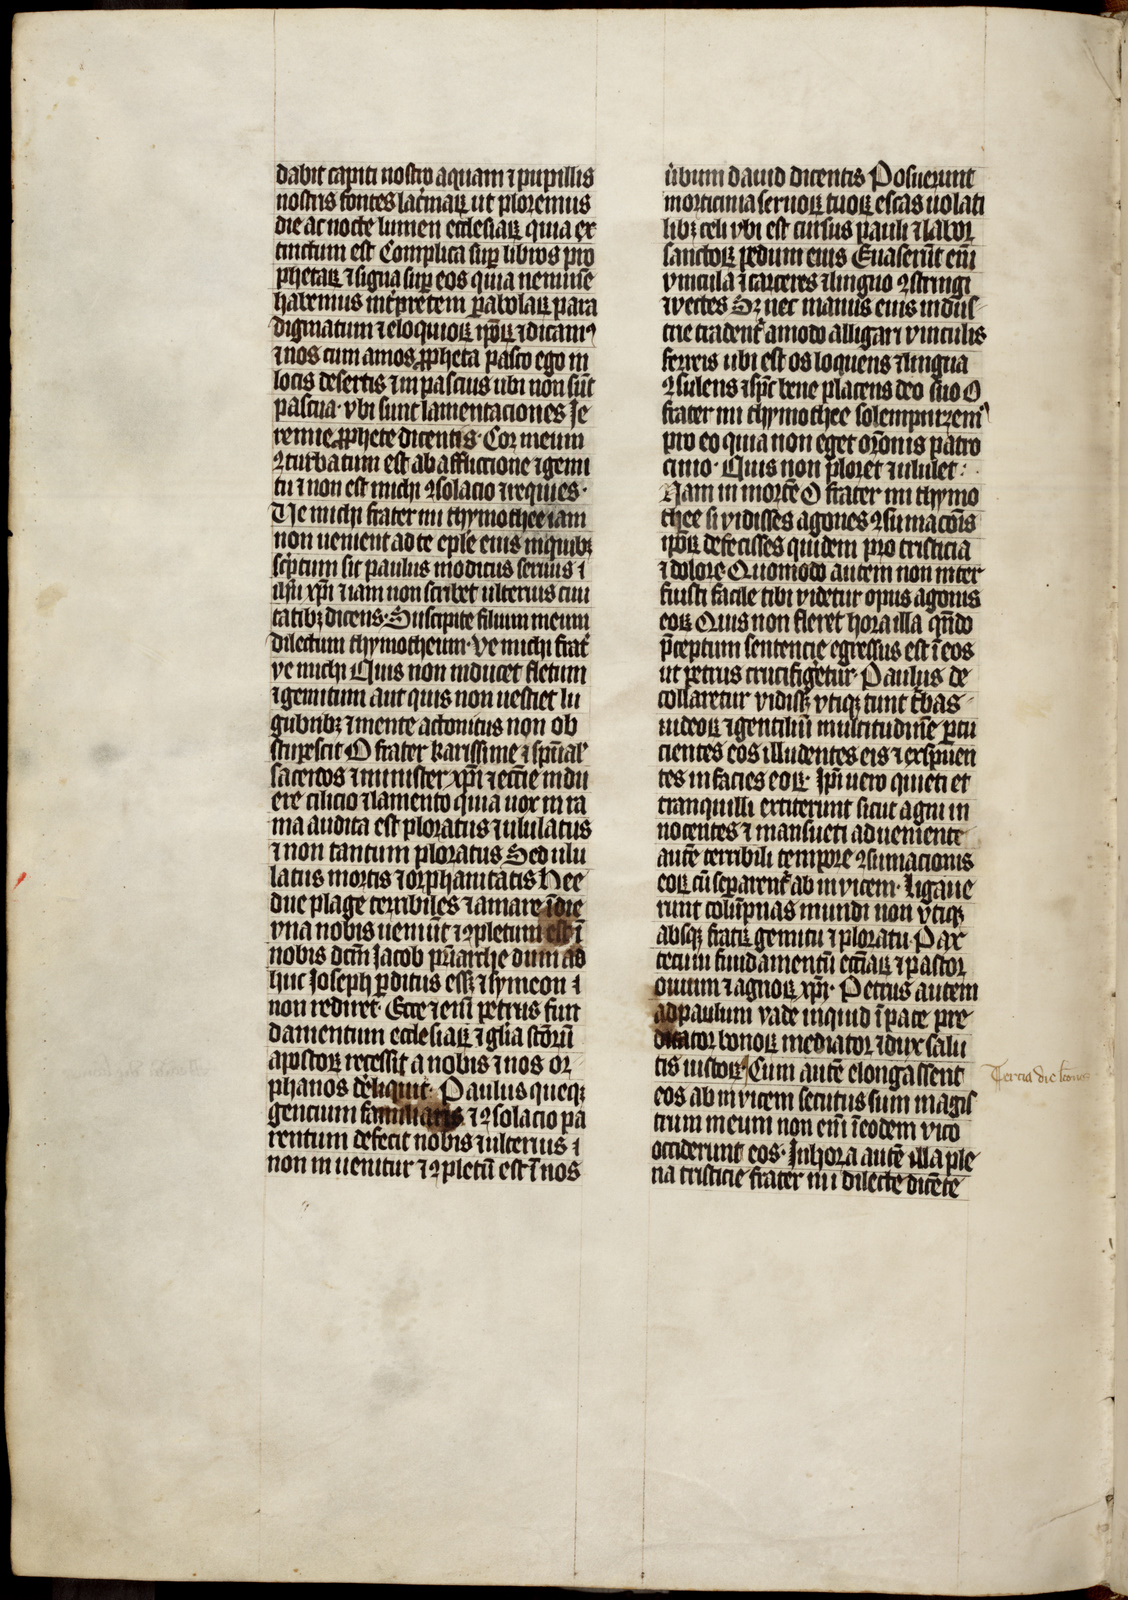 dabit capiti nostro aquam ⁊ pupillis
nostris fontes lac̾maꝝ ut ploremus
die ac nocte lumen ecclesiaꝝ quia ex
tinctum est Complica sup̱ libros pro
phetaꝝ ⁊ signa sup̱ eos quia neminē
habemus int̾pretem ꝑabolaꝝ para
digmatum ⁊ eloquioꝝ ip̄oꝝ ⁊ dicam᷒
⁊ nos cum amos ꝓpheta pasco ego in
locis desertis ⁊ in pascuis ubi non sūt
pascua· vbi sunt lamentaciones Je
remie ꝓphete dicentis· Cor meum
ꝯturbatum est ab afflictione ⁊ gemi
tu ⁊ non est michi ꝯsolacio ⁊ requies·
Ue michi frater mi thymothee iam
non uenient ad te ep̄le eius in quibꝫ
sc̾ptum sit paulus modicus seruus ⁊
ih̄u xp̄i ⁊ iam non scribet ulterius ciui
tatibꝫ dicens· Suscipite filium meum
dilectum thymotheum· ve michi frat̾
ve michi Quis non inducet fletum
⁊ gemitum aut quis non uestiet lu
gubribꝫ ⁊ mente actonitus non ob
stupescit O frater karissime ⁊ sp̄ual᷒
sacerdos ⁊ minister xp̄i ⁊ ecc̄ie indu
ere cilicio ⁊ lamento quia uox in ra
ma audita est ploratus ⁊ ululatus
⁊ non tantum ploratus Sed ulu
latus mortis ⁊ orphanitatis Hee
due plage terribiles ⁊ amare ī die
vna nobis ueniūt ⁊ ꝯpletum est ī
nobis dc̄m Jacob pr̄iarche dum ad
huc Joseph ꝑditus ess̄ ⁊ symeon ⁊
non rediret· Ecce ⁊ eni petrus fun
damentum ecclesiaꝝ ⁊ gl̄ia sc̄oꝝ
apostoꝝ recessit a nobis ⁊ nos or-
phanos deliquit· Paulus queqꝫ
gencium familiaris ⁊ ꝯsolacio pa
rentum defecit nobis ⁊ ulterius ⁊
non in uenitur ⁊ ꝯpletū est ī nos
u̾bum dauid dicentis Posuerunt
morticinia seruoꝝ tuoꝝ escas uolati
libꝫ celi vbi est cursus pauli ⁊ labor
sanctoꝝ pedum eius Euaserūt em̄
vincula ⁊ carceres ⁊ linguo ꝯstringi
⁊ vectes Sꝫ nec manus eius indus-
trie tradent̾ amodo alligari vinculis
ferreis ubi est os loquens ⁊ lingua
ꝯsulens ⁊ sp̄c bene placens deo suo O
frater mi thymothee solempnizem᷒
pro eo quia non eget or̄onis patro
cinio· Quis non ploret ⁊ ululet:·
Nam in morte O frater mi thymo
thee si vidisses agones ꝯsumac̄ois
ip̄oꝝ defecisses quidem pro tristicia
⁊ dolore Quomodo autem non inter
fuisti facile tibi videtur opus agonis
eoꝝ Quis non fleret hora illa qn̄do
p̄ceptum sentencie egressus est ī eos
ut petrus crucifigetur Paulus de
collaretur vidiss̄ vtiqꝫ tunc t̾bas-
iudeoꝝ ⁊ gentiliū multitudinē ꝑcu
cientes eos illudentes eis ⁊ exspuen
tes in facies eoꝝ· Ip̄i uero quieti et
tranquilli extiterunt sicut agni in
nocentes ⁊ mansueti adueniente
autē terribili tempore ꝯsumacionis
eoꝝ cū separent̾ ab inuicem· Ligaue
runt colūpnas mundi non vtiqꝫ
absqꝫ fratꝝ gemitu ⁊ ploratu· Pax
tecum fundamentū ecc̄iaꝝ ⁊ pastor
ouium ⁊ agnoꝝ xp̄i· Petrus autem
ad paulum vade inquid ī pace pre
dicator bonoꝝ mediator ⁊ dux salu
tis iustoꝝ Cum autē elongassent
eos ab inuicem secutus sum magis
trum meum non em̄ ī eodem vico
occiderunt eos· In hora autē illa ple
na tristicie frater mi dilecte dicēte
Tercia die